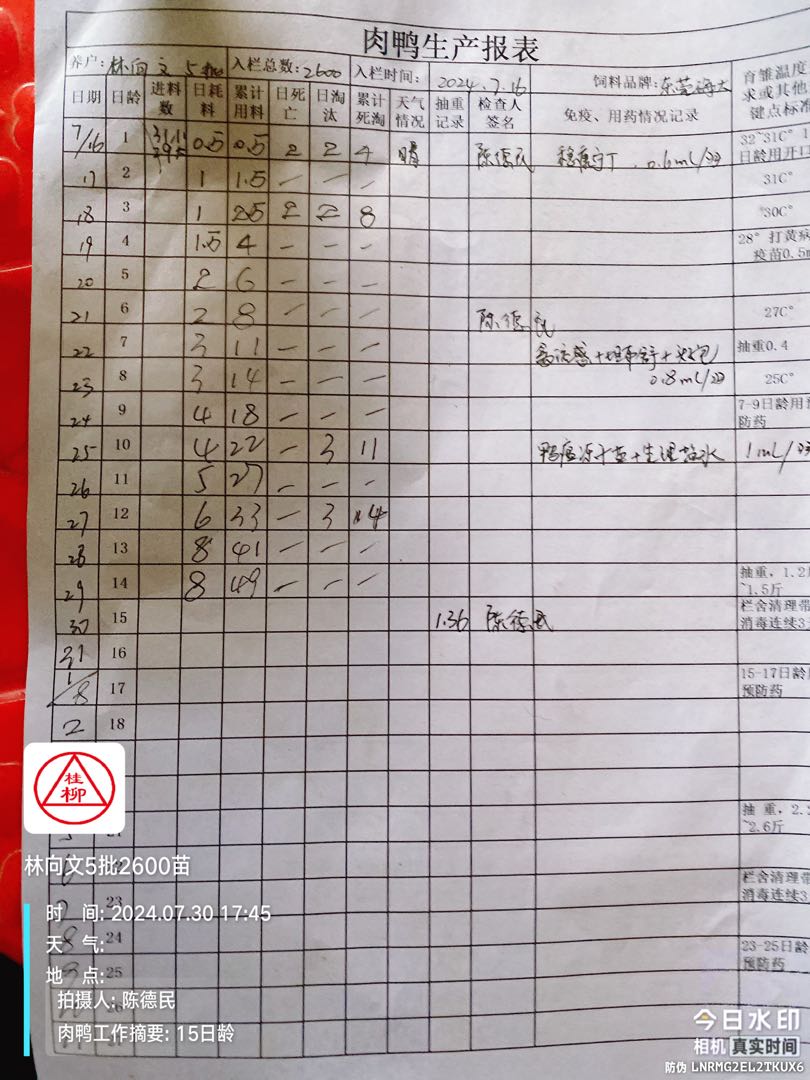 肉鸭生产报表
养户: 林向文 5批 入栏总数: 2600 入栏时间: 2024.7.16 饲料品牌: 东莞海大 育雏温度
求或其他
键点标准
日期 日龄 进料数 日耗料 累计用料 日死亡 日淘汰 累计死淘 天气情况 抽重记录 检查人签名 免疫、用药情况记录
7/16 1 0.5 0.5 2 2 4 晴 陈德民 0.6mL/羽 32~31C° 1
日龄用开口
17 2 1 1.5 — — — 31C°
18 3 1 2.5 2 2 8 30C°
19 4 1.5 4 — — — 28° 打黄病
疫苗0.5m
20 5 2 6 — — —
21 6 2 8 — — — 陈德民 27C°
22 7 3 11 — — — 抽重0.4
23 8 3 14 — — — 0.8mL/羽 25C°
24 9 4 18 — — — 7-9日龄用
防药
25 10 4 22 — 3 11 生理盐水 1mL/羽
26 11 5 27 — — —
27 12 6 33 — 3 14
28 13 8 41 — — —
29 14 8 49 — — — 抽重，1.2
~1.5斤
30 15 1.36 陈德民 栏舍清理带
消毒连续3
31 16
1/8 17 15-17日龄
预防药
2 18
桂柳
抽 重，2.2
~2.6斤
林向文5批2600苗
栏舍清理带
消毒连续3
23
时 间: 2024.07.30 17:45
天 气:
24 23-25日龄
预防药
地 点:
25
拍摄人: 陈德民
肉鸭工作摘要: 15日龄
今日水印
相机 真实时间
防伪 LNRMG2EL2TKUX6